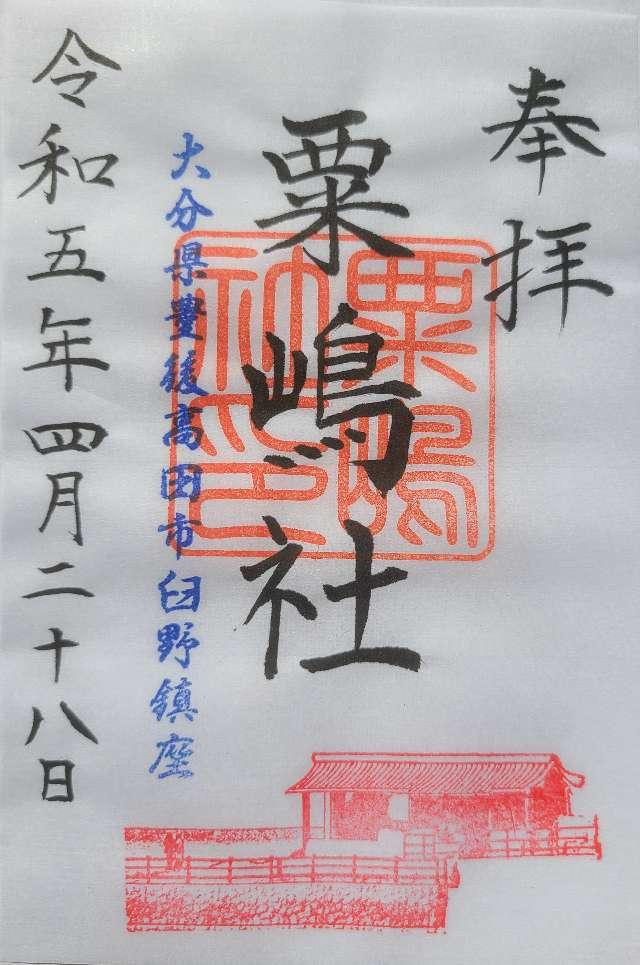 奉拝
粟嶋社
粟嶋神社印
大分県豊後高田市臼野鎮座
令和五年四月二十八日